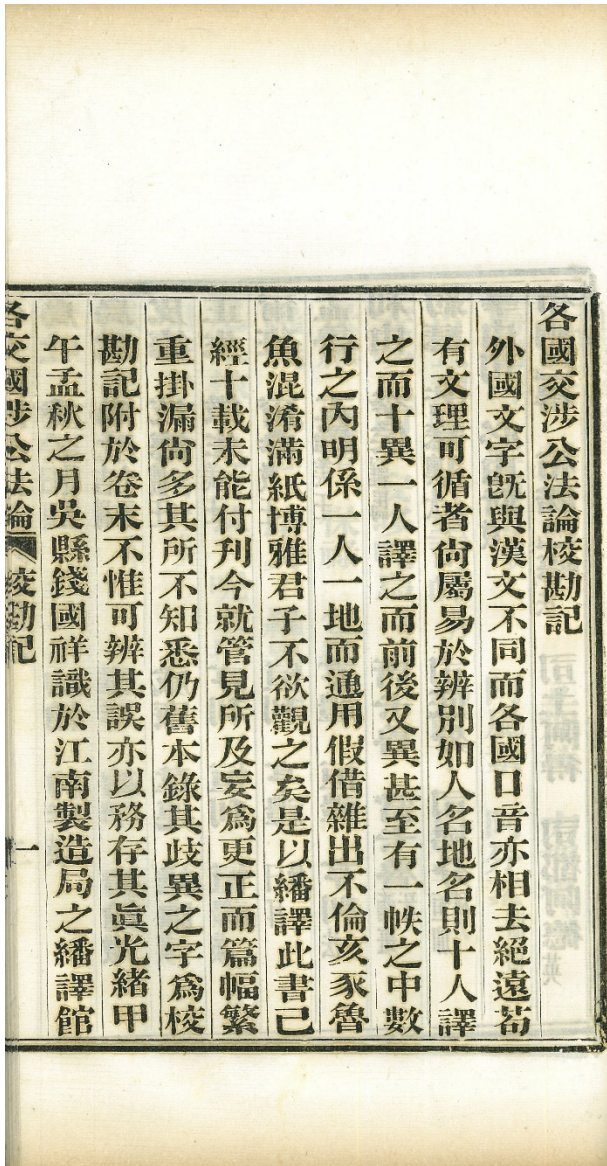 各國交涉公法論校勘記
外國文字既與漢文不同而各國口音亦相去絕遠苟
有文理可循者尙屬易於辨別如人名地名則十人譯
之而十異一人譯之而前後又異甚至有一帙之中數
行之內明係一人一地而通用假借雜出不倫亥豕魯
魚混淆滿紙博雅君子不欲觀之矣是以繙譯此書已
經十載未能付刊今就管見所及妄爲更正而篇幅繁
重掛漏尙多其所不知悉仍舊本錄其歧異之字爲校
勘記附於卷末不惟可辨其誤亦以務存其眞光緒甲
午孟秋之月吳縣錢國祥識於江南製造局之繙譯館
各國交涉公法論 校勘記 一